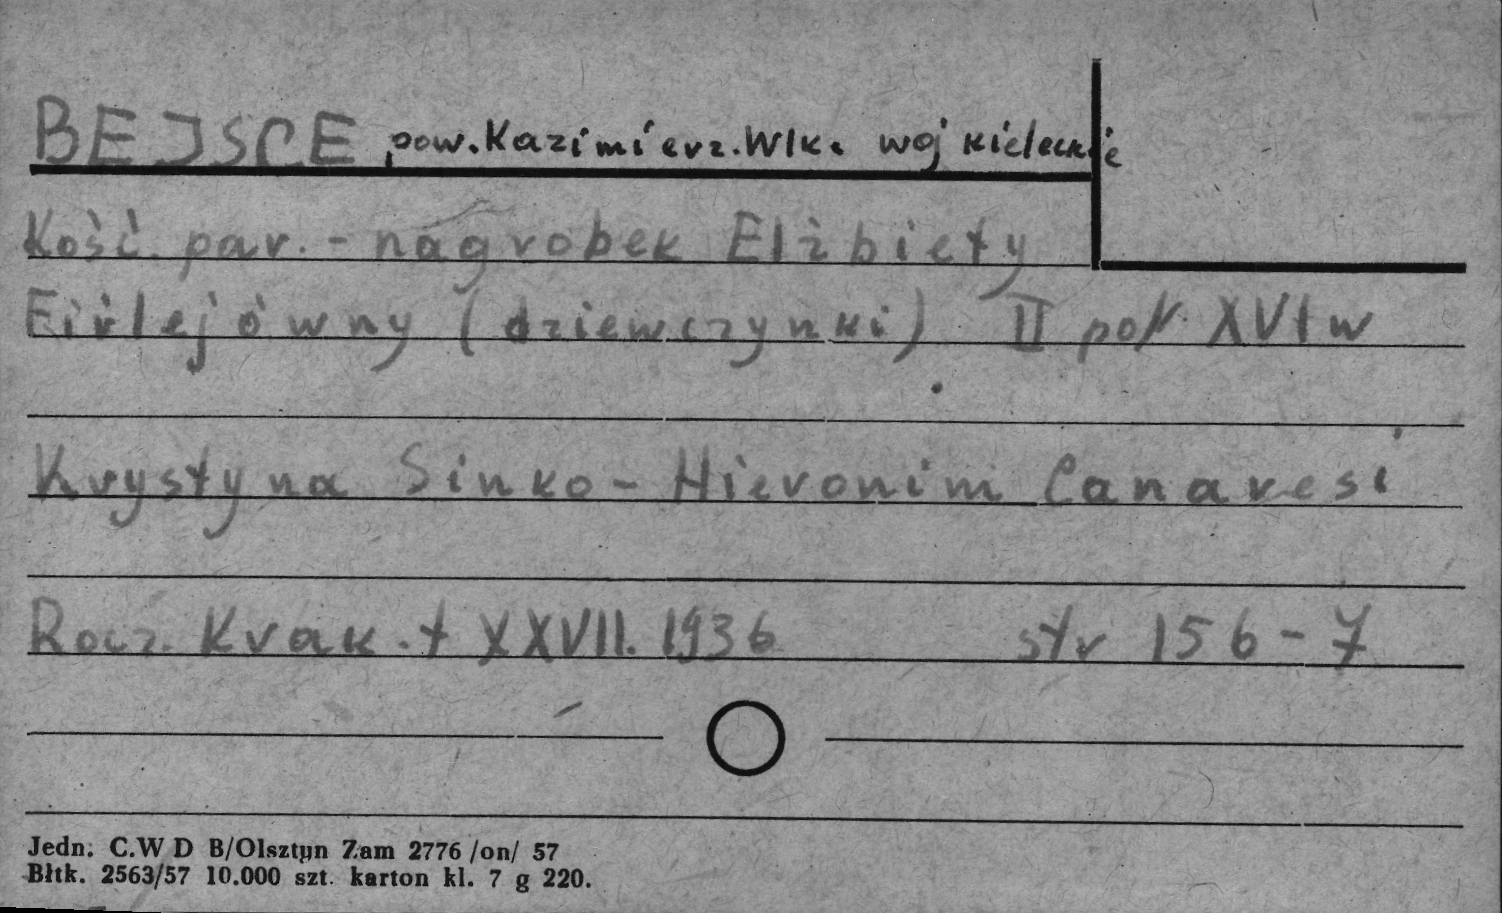 BEJSCE pow. Kazimierz. Wlk. woj kieleckie
Kość. par. - nagrobek Elżbiety
Firlejówny (dziewczynki) II poł. XVI w
Krystyna Sinko - Hieronim Canavesi
Rocz. Krak. t XXVII. 1936 str 156-7
Jedn. C.W D B/Olsztyn Zam 2776 /on/ 57
Błtk. 2563/57 10.000 szt. karton kl. 7 g 220.